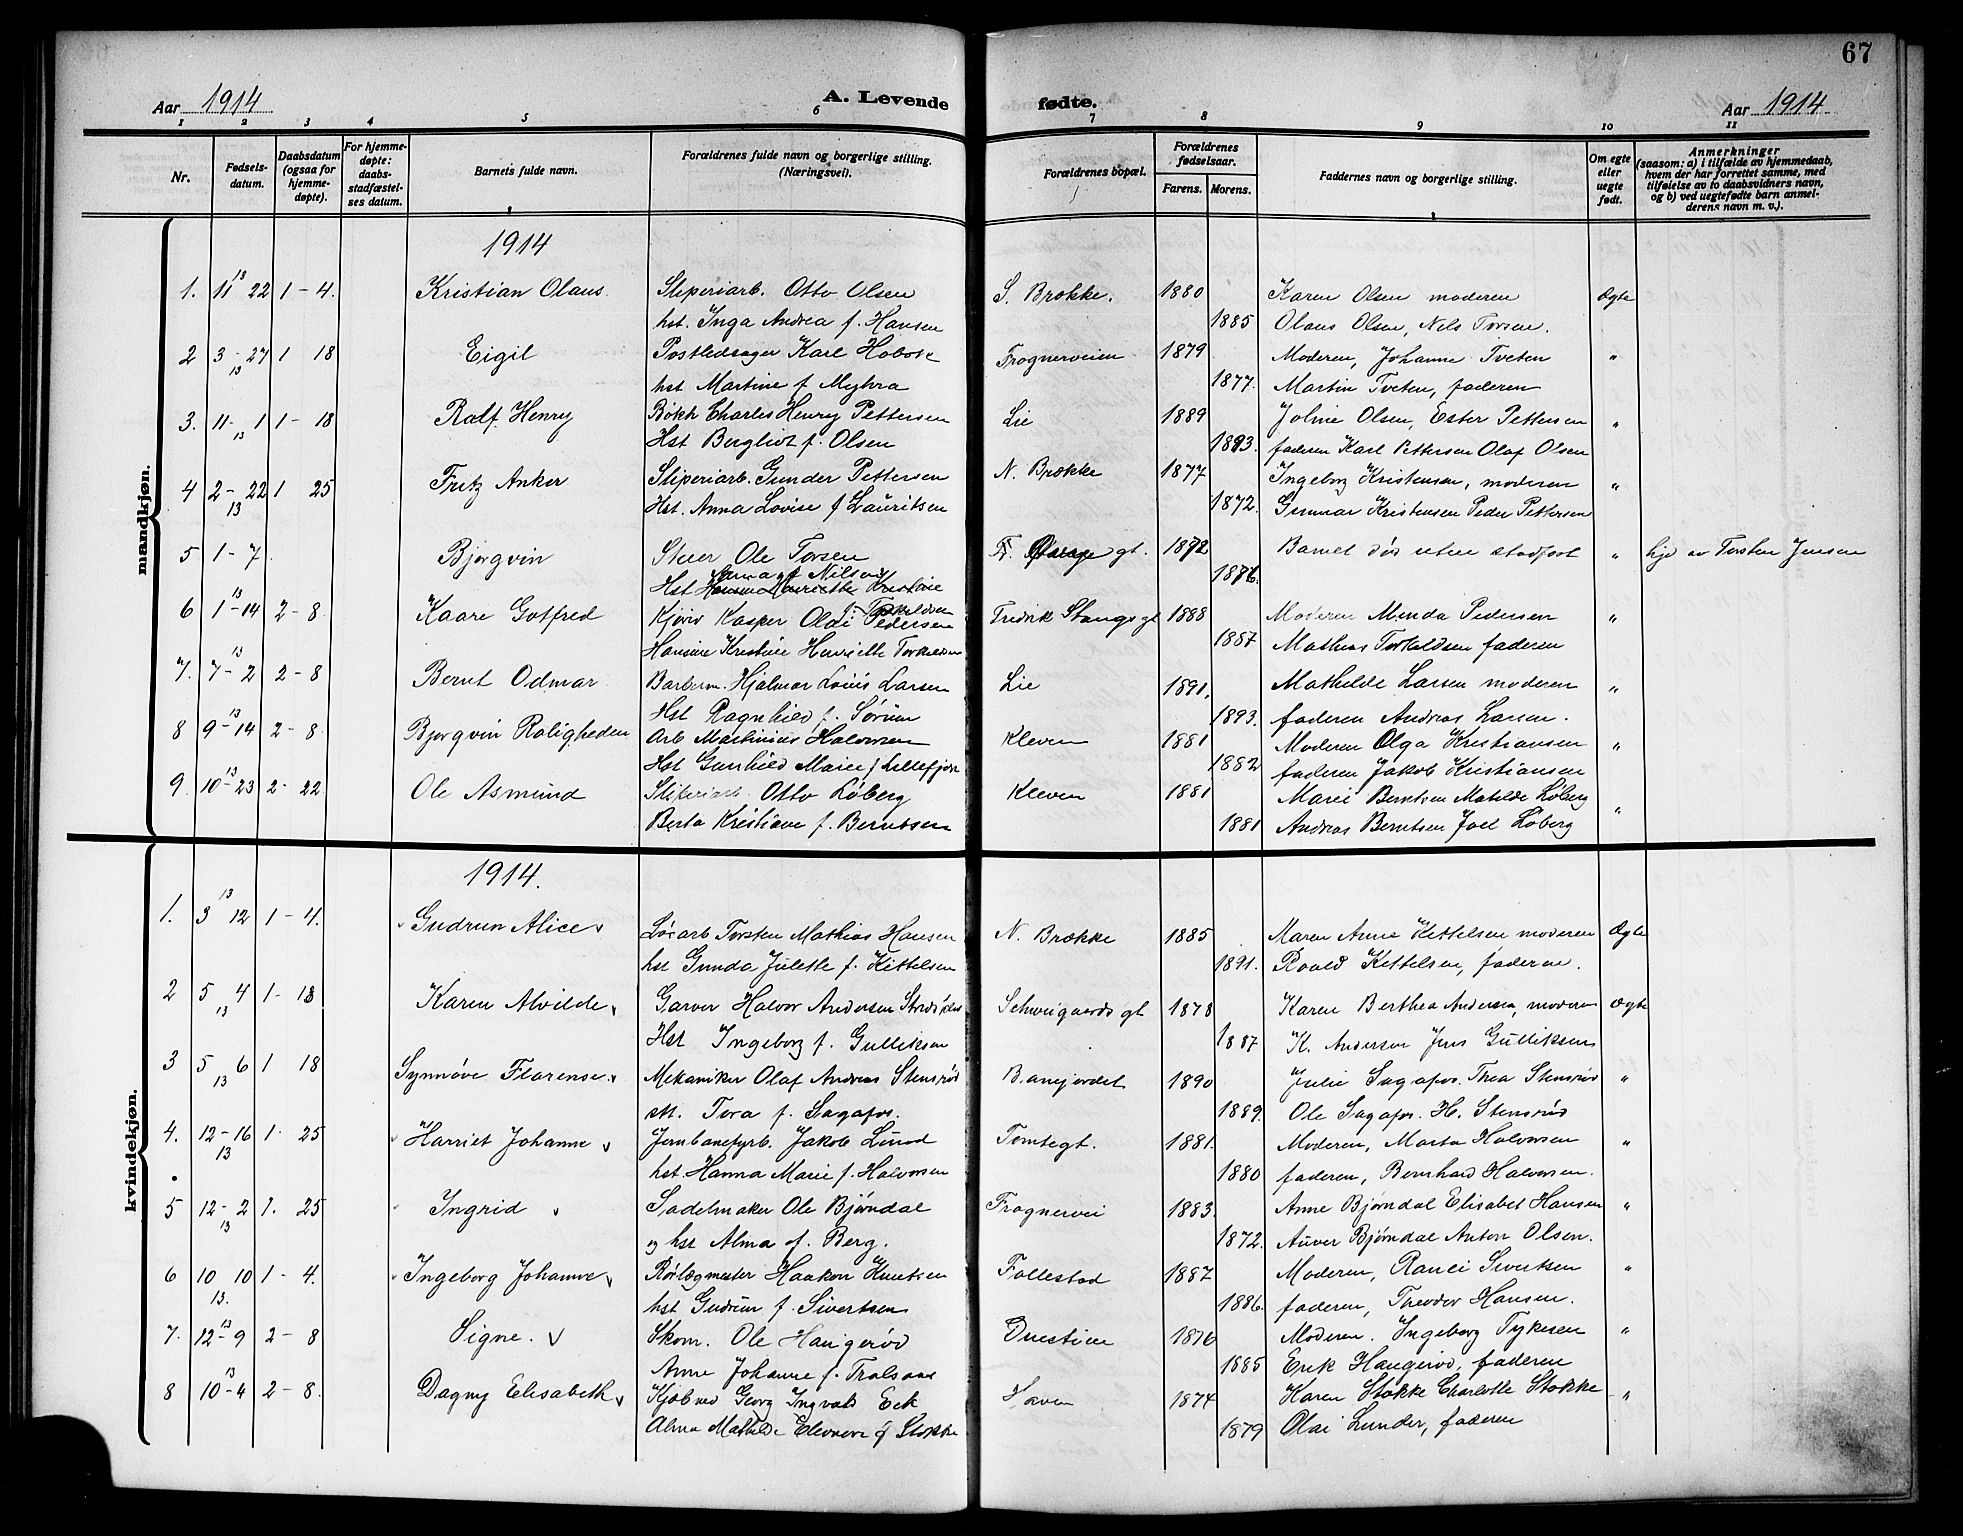 67
Aar 1914
A. Levende fødte.
Aar 1914
1 2 3 4 5 6 7 8 9 10 11
Nr.
Fødsels-
datum.
Daabsdatum
(ogsaa for
hjemme-
døpte).
For hjemme-
døpte:
daabs-
stadfæstel-
ses datum.
Barnets fulde navn.
Forældrenes fulde navn og borgerlige stilling.
(Næringsvei).
Forældrenes bopæl.
Forældrenes
fødselsaar.
Farens. Morens.
Faddernes navn og borgerlige stilling.
Om egte
eller
uegte
født.
Anmerkninger
(saasom: a) i tilfælde av hjemmedaab,
hvem der har forrettet samme, med
tilføielse av to daabsvidners navn,
og b) ved uegtefødte barn anmel-
derens navn m. v.).
mandkjøn.
1914
1. 11 13 22 1-4. Kristian Olaus Sliperiarb. Otto Olsen S. Brække. 1880 Karen Olsen moderen Ægte
hst. Inga Andrea f. Hansen 1885 Olaus Olsen, Nils Torsen.
2 3-27 13 1 18 Eigil Postledsager Karl Hobæk Frognerveien 1879 Moderen, Johanne Tveten "
hst Martine f Myhra 1877. Martin Tveten, faderen
3. 11-1 13 1-18 Ralf Henry Bøkh Charles Henry Pettersen Lie 1889 Jolme Olsen, Ester Pettersen "
Hst Bergliot f. Olsen 1893. faderen Karl Pettersen Olaf Olsen
4 2-22 13 1 25 Fritz Anker Sliperiarb. Gunder Pettersen N. Brække 1877 Ingeborg Kristensen, moderen "
Hst. Anna Lovise f Lauritsen 1872. Gunnar Kristensen Peder Pettersen
5 1-7 Bjørgvin Stuer Ole Torsen gt. 1872 Barnet død uten stadfæst " hjd av Torsten Jensen
Hst Anna f Nilsen 1876.
6 1 13 -14 2-8. Kaare Gotfred Kjørev Kasper Olai Pedersen Fredrik Stangs gt 1888 Moderen Menda Pedersen "
Hansine Kristine Henriette Torkildsen 1887 Mathias Torkildsen faderen
7. 7 13 -2 2-8 Bernt Odmar Barberm. Hjalmar Louis Larsen Lie 1891. Mathilde Larsen moderen "
Hst Ragnhild f. Sørum 1893. faderen Andreas Larsen.
8 9 13 -14 2-8. Bjørgvin Roligheden Arb Martinius Halvorsen Kleven 1881 Moderen Olga Kristiansen "
Hst Gunhild Marie f Lillefjær 1882 faderen Jakob Kristiansen
9. 10 13 -23 2-22. Ole Asmund Sliperiarb Otto Løberg Kleven 1881 Marei Berntsen Matilde Løberg "
Berta Kristiane f. Berntsen 1881 Andreas Berntsen Joel Løberg
kvindekjøn.
1914.
1. 3 13 12 1-4. Gudrun Alice Løsarb Torsten Mathias Hansen N. Brække 1885 Maren Anne Kittelsen moderen Ægte
hst Gunda Julette f. Kittelsen 1891. Roald Kittelsen, faderen.
2 5 4 13 1-18 Karen Alvilde Garver Halvor Andersen Schweigaards gt 1878 Karen Berthea Andersen, moderen Ægte
Hst Ingeborg f. Gulliksen 1887 K. Anderson Jens Gulliksen
3 5 6 13 1 18 Synnøve Florense Mekaniker Olaf Andreas Stensrød Banejordet 1890 Julie Sagafos. Thea Stensrød "
M. Tora f. Sagafos. 1889. Ole Sagafos. H. Stensrød
4. 12-16 13 1. 25 Harriet Johanne Jernbanefyrb. Jakob Lund Tomtegt. 1881. Moderen, Marta Halvorsen "
hst. Hanna Marie f. Halvorsen 1880 faderen, Bernhard Halvorsen.
5 12-2 13 1. 25 Ingrid Sadelmaker Ole Bjørndal Frognervei 1883. Anne Bjørndal Elisabet Hansen "
og hst Alma f. Berg. 1872. Auver Bjørndal Anton Olsen.
6 10 10 13. 1-4. Ingeborg Johanne Rørlægmester Haakon Knutsen Follestad 1887 Moderen, Ranei Sivertsen "
hst Gudrun f. Sivertsen 1886. faderen, Theodor Hansen.
7. 12 13 -9 2-8 Signe. Skom. Ole Haugerød Duestien 1876 Moderen. Ingeborg Tykesen "
Anne Johanne f. Tralsaas 1885 Erik Haugerød, faderen
8 10 13 -4 2-8. Dagny Elisabeth Kjøbmd Georg Ingvald Eek Haven 1874 Karen Stokke Charlotte Stokke "
Alma Mathilde Eleonore f Stokke 1879 Olai Lunder, faderen